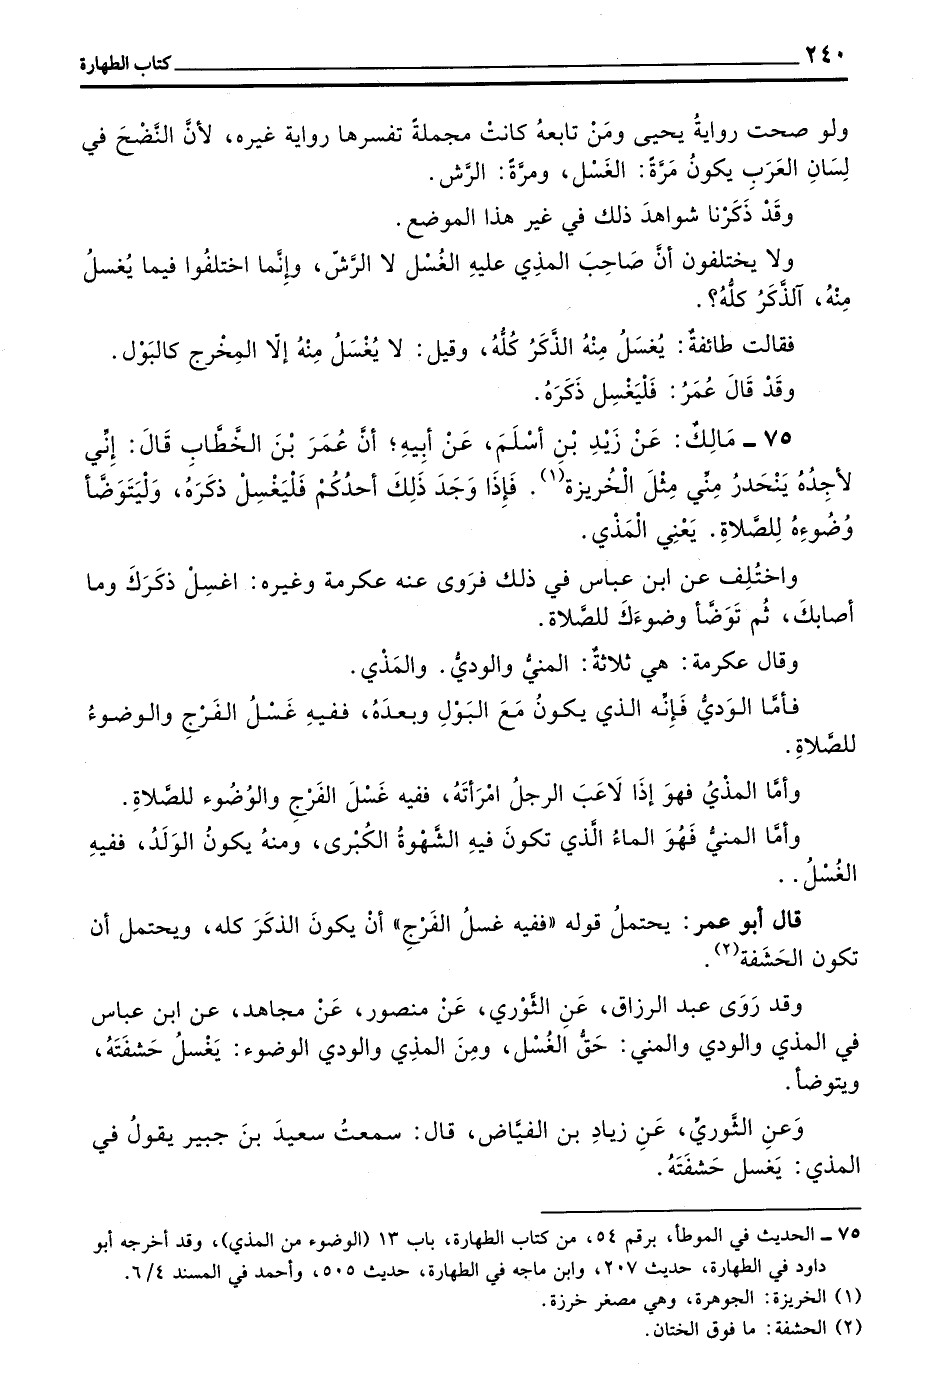 ٢٤٠ كتاب الطهارة
ولو صحت روايةُ يحيى ومَنْ تابعهُ كانتْ مجملةً تفسرها رواية غيره، لأنَّ النَّضْحَ في
لِسَانِ العَرَبِ يكونُ مَرَّةً: الغَسْل، ومرَّةً: الرَّش.
وقَدْ ذَكَرْنا شواهدَ ذلك في غير هذا الموضع.
ولا يختلفون أنَّ صَاحِبَ المذي عليهِ الغُسْل لا الرَّشّ، وإنَّما اختلفُوا فيما يُغسلُ
مِنْهُ، آلذَّكَرُ كلُّهُ؟.
فقالت طائفةٌ: يُغسَلُ مِنْهُ الذَّكَرُ كُلُّهُ، وقيل: لا يُغْسَلُ مِنْهُ إلّا المِخْرج كالبَوْل.
وقَدْ قَالَ عُمَرُ: فَلْيَغْسِل ذَكَرَهُ.
٧٥ ـ مَالِكٌ: عَنْ زَيْدِ بْنِ أسْلَمَ، عَنْ أبِيهِ؛ أنَّ عُمَرَ بْنَ الخَّطَّابِ قَالَ: إنِّي
لأجِدُهُ يَنْحَدرُ مِنِّي مِثْلَ الْخُريزة(١). فَإِذَا وَجَدَ ذَلِكَ أحدُكُمْ فَلْيَغْسِلْ ذكَرَهُ، وَلْيَتَوَضَّأ
وُضُوءِهُ لِلصَّلاةِ. يَعْنِي الْمَذْي.
واختُلِف عن ابن عباس في ذلك فرَوى عنه عكرمة وغيره: اغسِلْ ذكَرَكَ وما
أصابكَ، ثُم تَوَضَّأ وضوءَكَ للصَّلاة.
وقال عكرمة: هي ثلاثةٌ: المنيُّ والوديُّ. والمَذْي.
فأمَّا الوَديُّ فَإِنَّه الذي يكونُ مَعَ البَوْلِ وبعدَهُ، ففيهِ غَسْلُ الفَرْجِ والوضوءُ
للصَّلاةِ.
وأمَّا المذْيُ فهوَ إذَا لَاعَبَ الرجلُ امْرأتَهُ، ففيه غَسْلَ الفَرْجِ والوُضُوء للصَّلاةِ.
وأمَّا المنيُّ فَهُوَ الماءُ الَّذي تكونَ فيهِ الشَّهْوةُ الكُبْرى، ومنهُ يكونُ الوَلَدُ، ففيهِ
الغُسْلُ..
قال أبو عمر: يحتملُ قوله «ففيه غسلُ الفَرْجِ» أنْ يكونَ الذكَرَ كله، ويحتمل أن
تكون الحَشَفة(٢).
وقد رَوَى عبد الرزاق، عَنِ الثَّوْري، عَنْ منصور، عَنْ مجاهد، عن ابن عباس
في المذي والودي والمني: حَقُّ الغُسْل، ومِنَ المذي والودي الوضوء: يَغْسلُ حَشفَتَهُ،
ويتوضأ.
وَعنِ الثَّوريِّ، عَنِ زيادِ بن الفيَّاض، قال: سمعتُ سعيدَ بنَ جبير يقولُ في
المذي: يَغسل حَشفَتَهُ.
٧٥ ـ الحديث في الموطأ، برقم ٥٤، من كتاب الطهارة، باب ١٣ (الوضوء من المذي)، وقد أخرجه أبو
داود في الطهارة، حديث ٢٠٧، وابن ماجه في الطهارة، حديث ٥٠٥، وأحمد في المسند ٦/٤.
(١) الخريزة: الجوهرة، وهي مصغر خرزة.
(٢) الحشفة: ما فوق الختان.